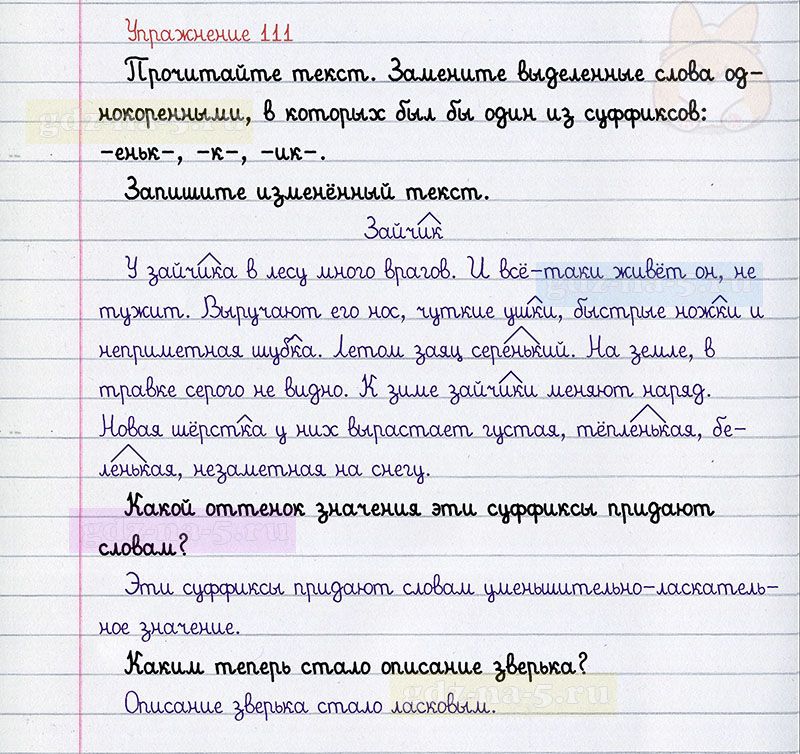 Упражнение 111
Прочитайте текст. Замените выделенные слова од-
нокоренными, в которых был бы один из суффиксов:
-еньк-, -к-, -ик-.
Запишите изменённый текст.
Зайчик
У зайчика в лесу много врагов. И всё-таки живёт он, не
тужит. Выручают его нос, чуткие ушки, быстрые ножки и
неприметная шубка. Летом заяц серенький. На земле, в
травке серого не видно. К зиме зайчики меняют наряд.
Новая шёрстка у них вырастает густая, тёпленькая, бе-
ленькая, незаметная на снегу.
Какой оттенок значения эти суффиксы придают
словам?
Эти суффиксы придают словам уменьшительно-ласкатель-
ное значение.
Каким теперь стало описание зверька?
Описание зверька стало ласковым.
gdz-na-5.ru
gdz-na-5.ru
gdz-na-5.ru
gdz-na-5.ru